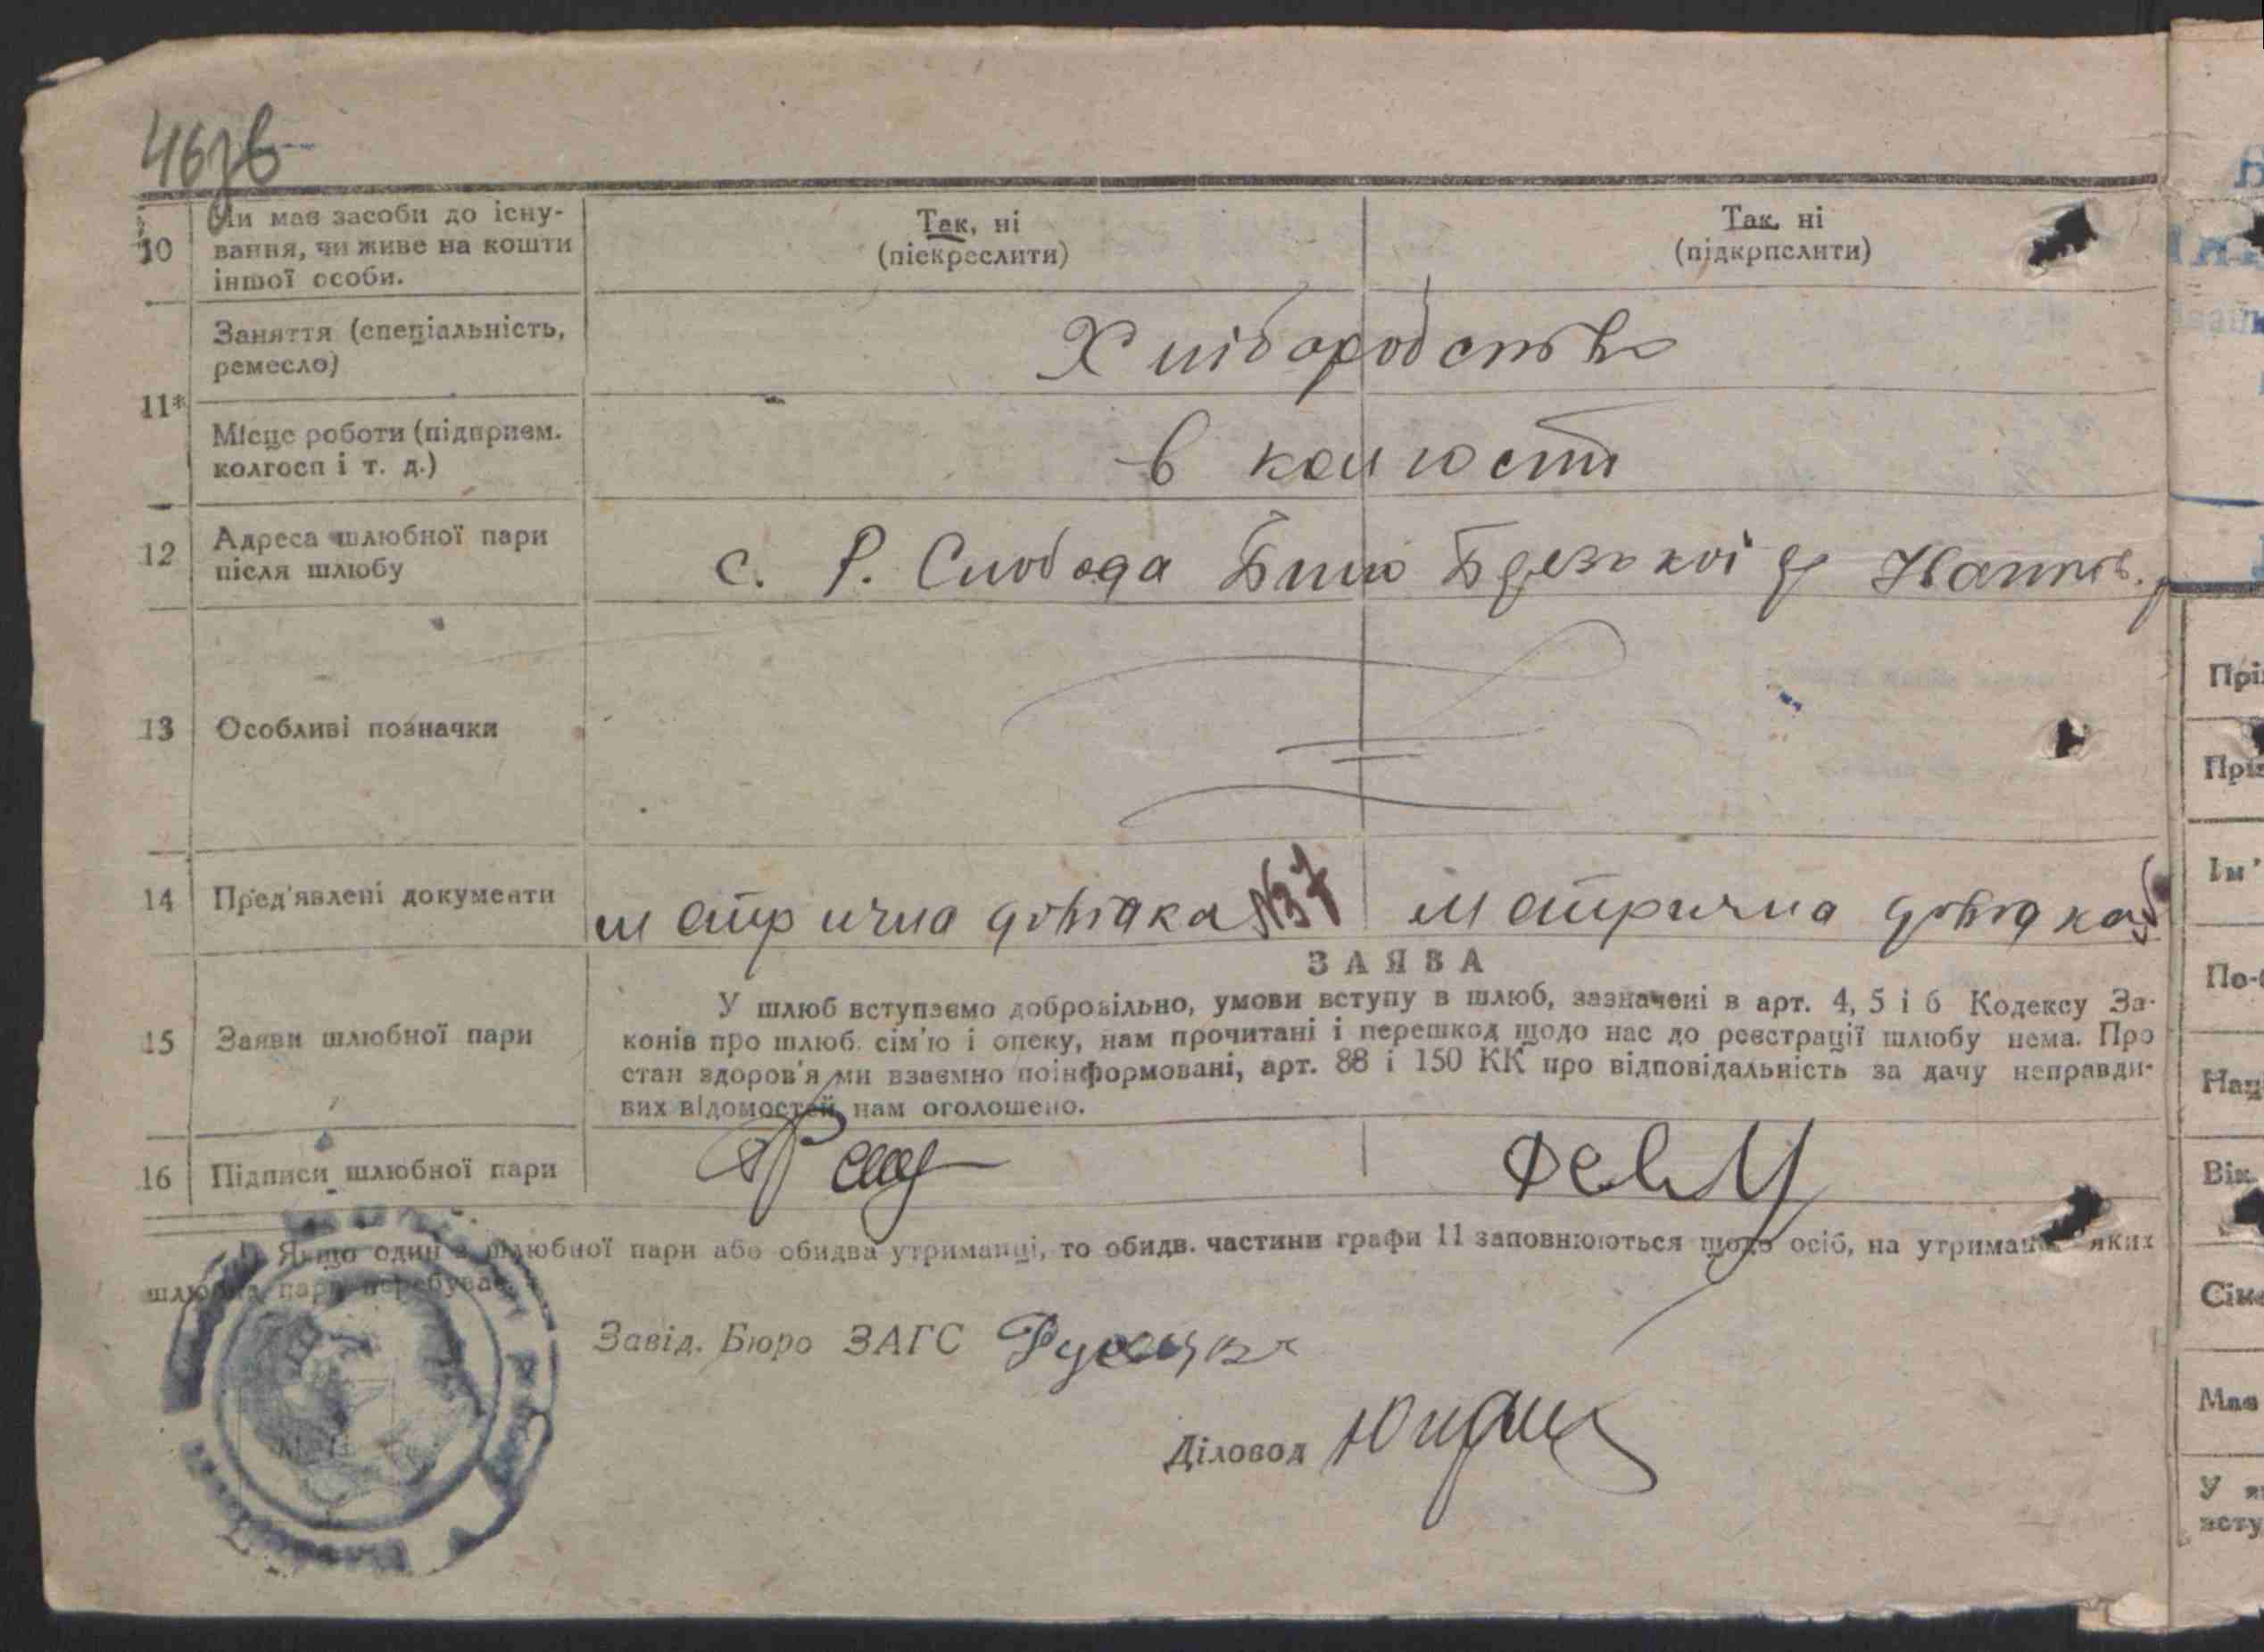 46зв
10 Чи має засоби до існу-
вання, чи живе на кошти
іншої особи.
Так, ні
(піекреслити)
Так, ні
(підкрпслити)
11*
Заняття (спеціальність,
ремесло)
Хліборобство
Місце роботи (підприєм.
колгосп і т. д.)
в колгоспі
12 Адреса шлюбної пари
після шлюбу
с. Р. Слобода
13 Особливі позначки
14 Пред'явлені документи
матрична довідка №37
матрична довідка
ЗАЯВА
15 Заяви шлюбної пари
У шлюб вступаємо добровільно, умови вступу в шлюб, зазначені в арт. 4, 5 і 6 Кодексу За-
конів про шлюб. сім'ю і опеку, нам прочитані і перешкод щодо нас до реєстрації шлюбу нема. Про
стан здоров'я ми взаємно поінформовані, арт. 88 і 150 КК про відповідальність за дачу неправди-
вих відомостей нам оголошено.
16 Підписи шлюбної пари
Якщо один з шлюбної пари або обидва утриманці, то обидв. частини графи 11 заповнюються щодо осіб, на утриманні яких
шлюбна пара перебуває.
Завід. Бюро ЗАГС
Діловод
Прі
Прі
Ім'
По-
Нац
Вік
Сім
Має
У
всту